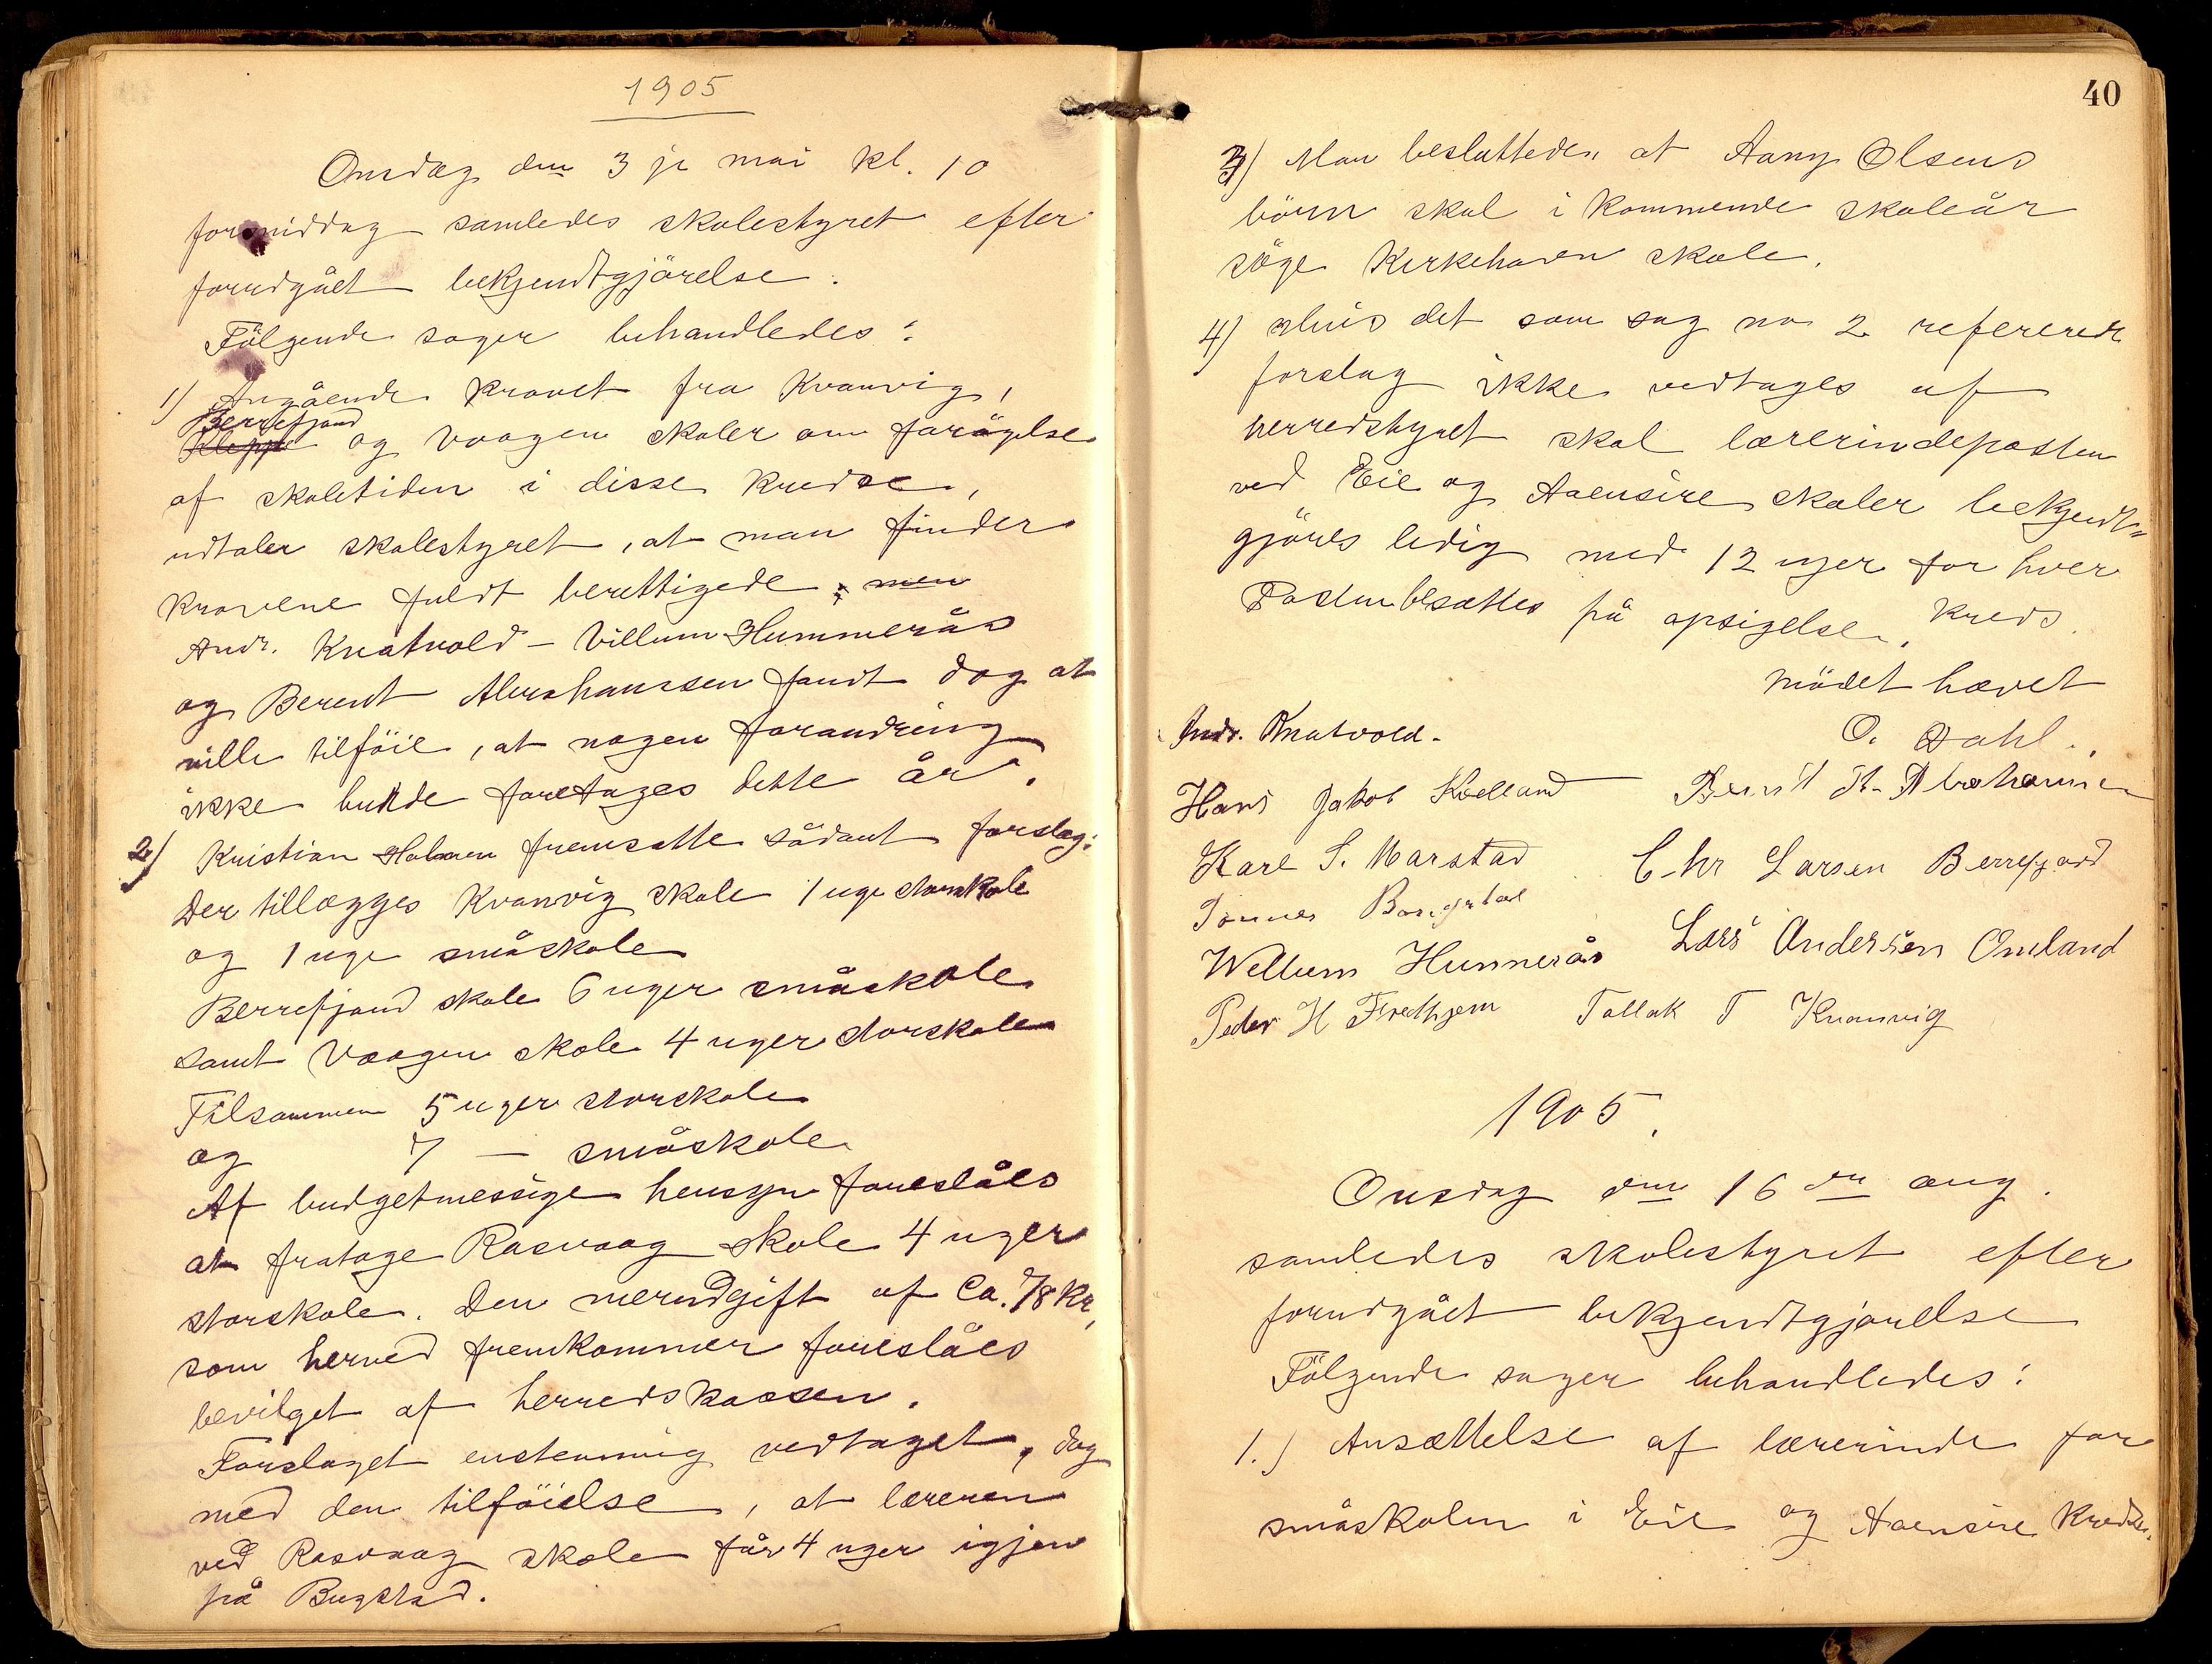 1905
Onsdag den 3je mai kl. 10
formiddag samledes skolestyret efter
forudgået bekjendtgjörelse.
Fölgende sager behandledes:
1) Angående kravet fra Kvanvig,
Berrefjord
Kleppe og Vaagen skoler om forögelse
af skoletiden i disse kredse,
udtaler skolestyret, at man finder
kravene fuldt berettigede; men
Andr. Knatvold – Villum Hummerås
og Berent Abrahamsen fandt dog at
ville tilföie, at nogen forandring
ikke burde foretages dette år.
2) Kristian fremsatte sådant forslag:
Der tillægges Kvanvig skole 1 uge storskole
og 1 uge småskole
Berrefjord skole 6 uger småskole
samt Vaagen skole 4 uger storskole
Tilsammen 5 uger storskole
og 7 — småskole
Af budgetmessige hensyn foreslåes
at fratage Rasvaag skole 4 uger
storskole. Den merudgift af Ca. 78 kr,
som herved fremkommer foreslåes
bevilget af herredskassen.
Forslaget enstemmig vedtaget, dog
med den tilföielse, at læreren
ved Rasvaag skole får 4 uger igjen
på Bugstad.
40
3) Man besluttede, at Aang Olsens
börn skal i kommende skoleår
söge Kirkehavn skole.
4) Hvis det som sag no 2 refererede
forslag ikke vedtages af
herredstyret skal lærerindeposten
ved Eie og Aaensire skoler bekjendt=
gjöres ledig med 12 uger for hver
kreds.
Posten besættes på opsigelse.
Mödet hævet
Andr. Knatvold. O. Dahl.
Hans Jakob Kielland Bernt A. Abrahamsen
Karl S. Marstad Chr Larsen Berrefjord
Tönnes Bangstad
Wellum Hummerås Lars Andersen Omland
Peder H Tallak T Kvanvig
1905.
Onsdag den 16de aug.
samledes skolestyret efter
forudgået bekjendtgjörelse
Fölgende sager behandledes:
1.) Ansættelse af lærerinde for
småskolen i Eie og Aaensire kredse.